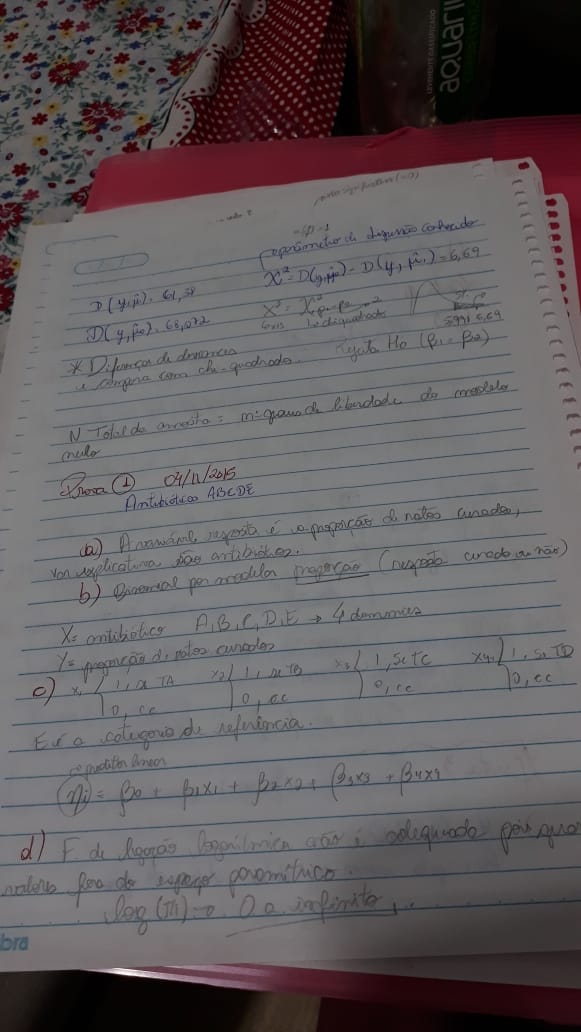 aquarius
parâmetro de dispersão conhecido
D(y,μ̂). 61,38
X² = D(y,μ̂₀) - D(y, μ̂₁) = 6,69
D(y, μ̂₀). 68,072
* Diferença de deviances
e compara com chi-quadrado.
Rejeita H0 (β1 = β2)
5,991 6,69
N Total da amostra = m-graus de liberdade do modelo
nulo
Prova 1 04/11/2015
Antibiótico ABCDE
(a) A variável resposta é a proporção de ratos curados,
var explicativa são antibióticos.
b) Binomial por modelar proporção (resposta curado ou não)
X = antibiótico A, B, C, D, E → 4 dummies
Y = proporção de ratos curados
c) x1 { 1, se TA x2 { 1, se TB x3 { 1, se TC x4 { 1, se TD
0, cc 0, cc 0, cc 0, cc
E é a categoria de referência.
preditor linear
ηi = β0 + β1x1 + β2x2 + β3x3 + β4x4
d) F. de ligação logarítmica não é adequada pois
valores fora do espaço paramétrico.
log(πi) → 0 a infinito
bra